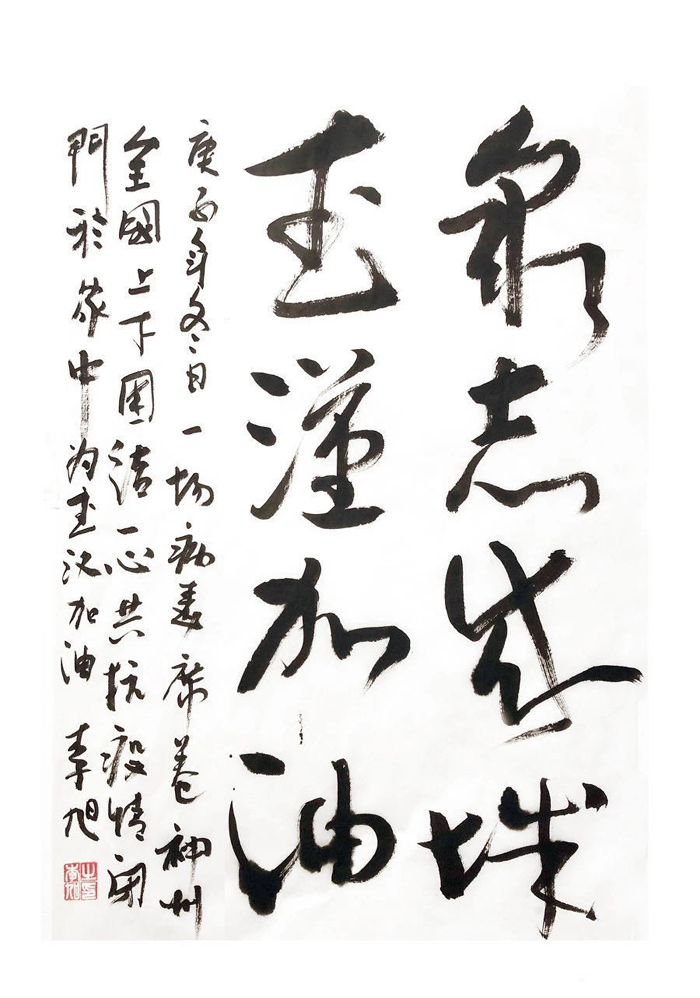 衆志成城
武漢加油
庚子年冬日一场病毒席卷神州
全國上下團结一心共抗疫情闭
門於家中为武汉加油 李旭